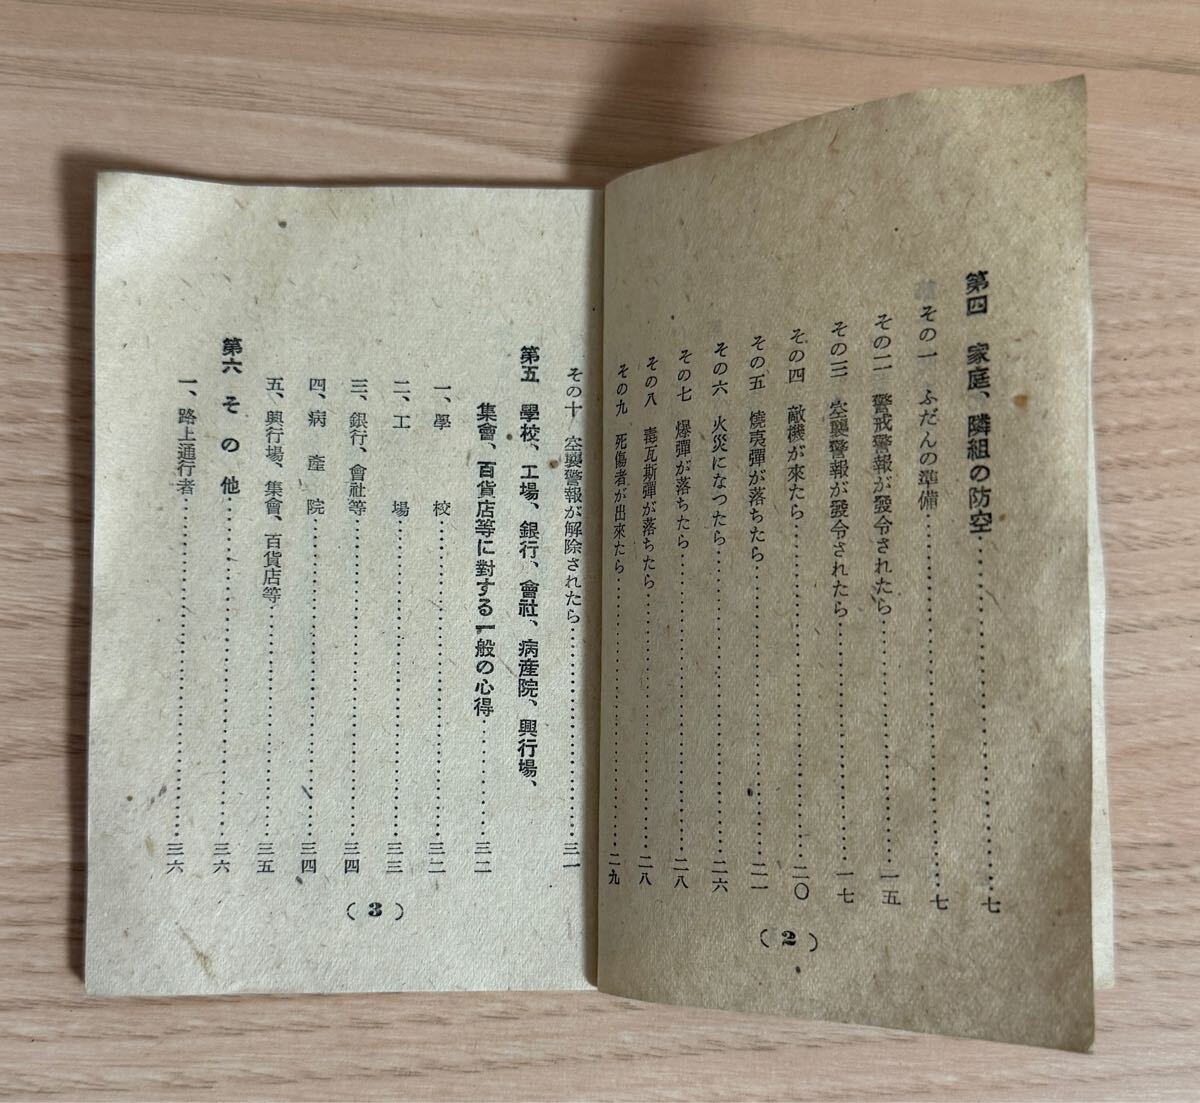 第四　家庭、隣組の防空……七
その一　ふだんの準備……七
その二　警戒警報が發令されたら……一五
その三　空襲警報が發令されたら……一七
その四　敵機が來たら……二〇
その五　燒夷彈が落ちたら……二一
その六　火災になつたら……二六
その七　爆彈が落ちたら……二八
その八　毒瓦斯彈が落ちたら……二八
その九　死傷者が出來たら……二九
(2)
その十　空襲警報が解除されたら……三一
第五　學校、工場、銀行、會社、病産院、興行場、
集會、百貨店等に對する一般の心得……三二
一、學　校……三二
二、工　場……三三
三、銀行、會社等……三四
四、病　産　院……三四
五、興行場、集會、百貨店等……三五
第六　その他……三六
一、路上通行者……三六
(3)